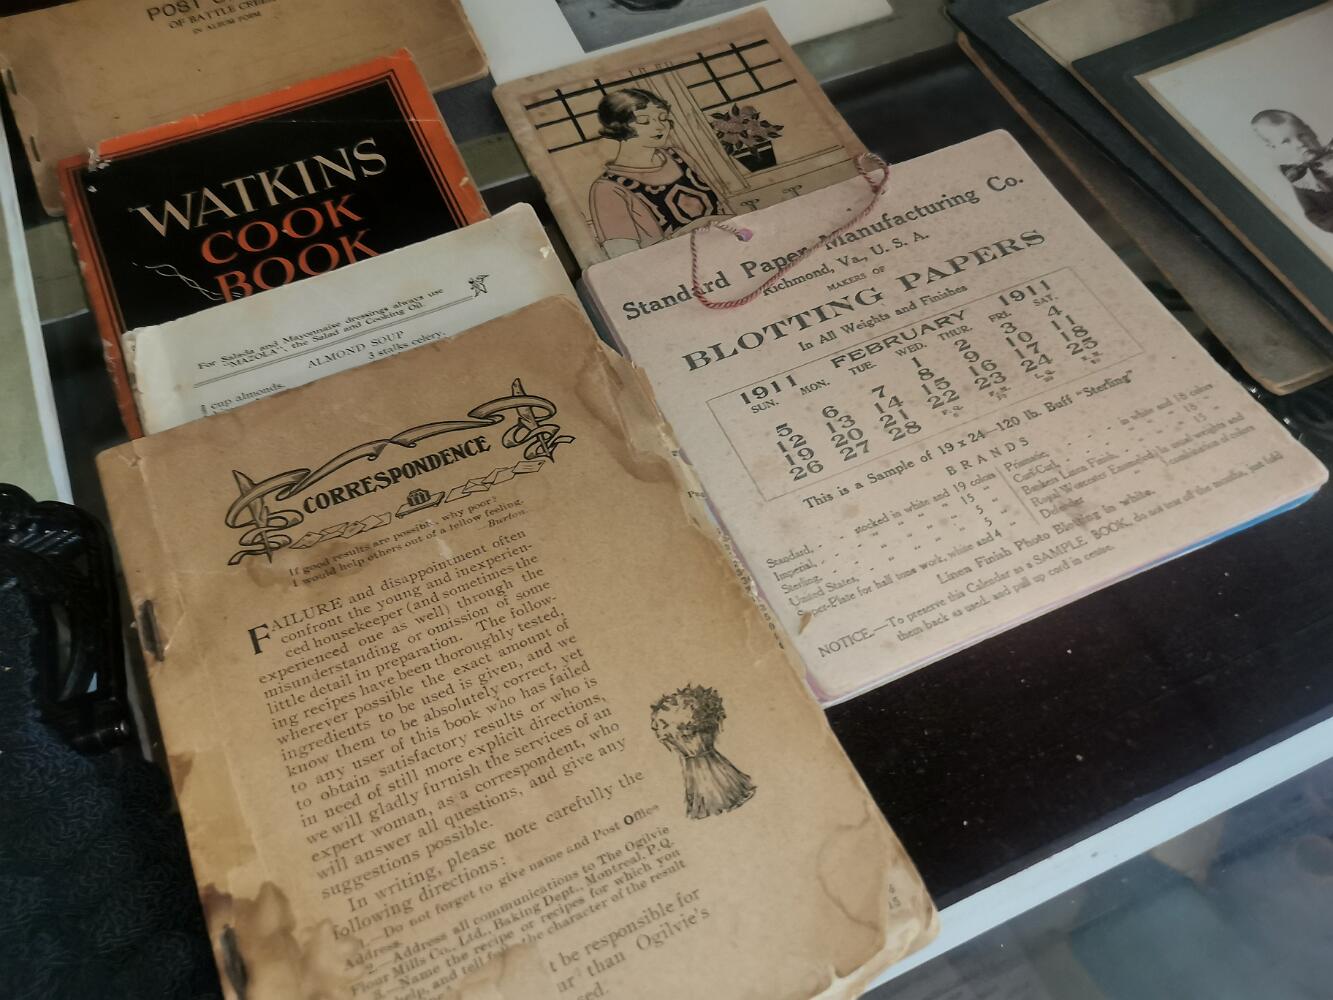 POST
OF BATTLE CREEK
IN ALBUM FORM
WATKINS
COOK
BOOK
For Salads and Mayonnaise dressings always use
"MAZOLA", the Salad and Cooking Oil.
ALMOND SOUP
3 stalks celery,
cup almonds,
CORRESPONDENCE
If good results are possible, why poor?
I would help others out of a fellow feeling.
—Burton.
FAILURE and disappointment often
confront the young and inexperien-
ced housekeeper (and sometimes the
experienced one as well) through the
misunderstanding or omission of some
little detail in preparation. The follow-
ing recipes have been thoroughly tested,
wherever possible the exact amount of
ingredients to be used is given, and we
know them to be absolutely correct, yet
to any user of this book who has failed
to obtain satisfactory results or who is
in need of still more explicit directions,
we will gladly furnish the services of an
expert woman, as a correspondent, who
will answer all questions, and give any
suggestions possible.
In writing, please note carefully the
following directions:
1.—Do not forget to give name and Post Office
Address.
2.—Address all communications to The Ogilvie
Flour Mills Co., Ltd., Baking Dept., Montreal, P.Q.
3.—Name the recipe or recipes for which you
help, and tell the character of the result
t be responsible for
than Ogilvie's
sed.
Standard Paper Manufacturing Co.
Richmond, Va., U. S. A.
MAKERS OF
BLOTTING PAPERS
In All Weights and Finishes
1911 FEBRUARY 1911
SUN. MON. TUE. WED. THUR. FRI. SAT.
1 2 3 4
5 6 7 8 9 10 11
12 13 14 15 16 17 18
19 20 21 22 23 24 25
26 27 28
This is a Sample of 19 x 24—120 lb. Buff "Sterling"
BRANDS
Standard, stocked in white and 19 colors
Imperial, " " " 15 "
Sterling, " " " 5 "
United States, " " " 5 "
Super-Plate for half tone work, white and 4 "
Primrose, in white and 18 colors
Curi-Curl, " " 18 "
Bankers Linen Finish, " " 15 "
Royal Worcester Enameled in usual weights and
Defender combination of colors
Linen Finish Photo Blotting in white.
NOTICE.—To preserve this Calendar as a SAMPLE BOOK, do not tear off the months, just fold
them back as used, and pull up cord in centre.